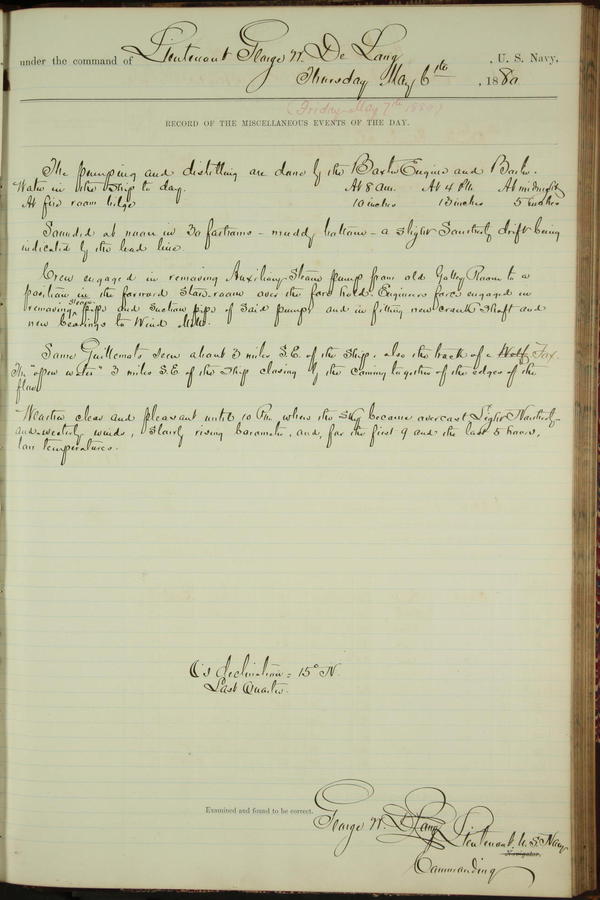 under the command of Lieutenant George W. De Long, U. S. Navy,
Thursday May 6th, 1880
(Friday May 7th 1880)
RECORD OF THE MISCELLANEOUS EVENTS OF THE DAY.
The pumping and distilling are done by the Baxter Engine and Boiler.
Water in the Ship to day. At 8 a.m. At 4 P.M. At midnight
At fire room bilge 10 inches 13 inches 5 inches
Sounded at noon in 30 fathoms - muddy bottom - a slight Southerly drift being
indicated by the lead line.
Crew engaged in removing Auxiliary Steam pump from old Galley Room to a
position in the forward store room over the fore hold. Engineers force engaged in
removing Steam pipe and suction pipe of said pump, and in fitting new crank shaft and
new bearings to Wind Mill.
Some Guillemots seen about 3 miles S.E. of the ship, also the track of a Wolf Fox.
The "open water" 3 miles S.E. of the ship closing by the coming together of the edges of the
floes.
Weather clear and pleasant until 10 P.M. when the sky became overcast. Light Northerly
and westerly winds, slowly rising barometer, and, for the first 9 and the last 5 hours,
low temperatures.
☾'s declination = 15° N.
Last Quarter.
Examined and found to be correct.
George W. De Long Lieutenant U.S. Navy
Navigator.
Commanding